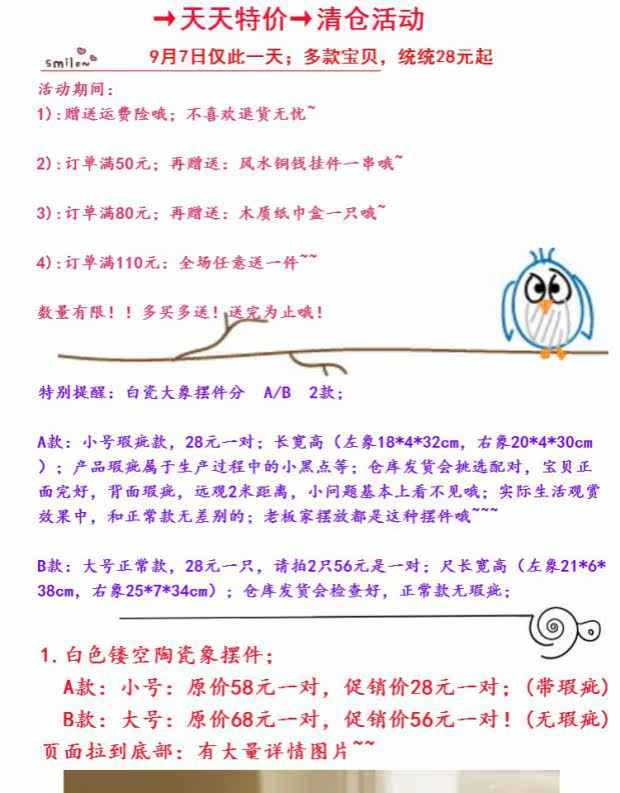 →天天特价→清仓活动
smile~
9月7日仅此一天；多款宝贝，统统28元起
活动期间：
1）:赠送运费险哦；不喜欢退货无忧~
2）:订单满50元；再赠送：风水铜钱挂件一串哦~
3）:订单满80元；再赠送：木质纸巾盒一只哦~
4）:订单满110元：全场任意送一件~~
数量有限！！多买多送！送完为止哦！
特别提醒：白瓷大象摆件分 A/B 2款；
A款：小号瑕疵款，28元一对；长宽高（左象18*4*32cm，右象20*4*30cm
）；产品瑕疵属于生产过程中的小黑点等；仓库发货会挑选配对，宝贝正
面完好，背面瑕疵，远观2米距离，小问题基本上看不见哦；实际生活观赏
效果中，和正常款无差别的；老板家摆放都是这种摆件哦~~~
B款：大号正常款，28元一只，请拍2只56元是一对；尺长宽高（左象21*6*
38cm，右象25*7*34cm）；仓库发货会检查好，正常款无瑕疵；
1.白色镂空陶瓷象摆件；
A款：小号：原价58元一对，促销价28元一对；（带瑕疵）
B款：大号：原价68元一对，促销价56元一对！（无瑕疵）
页面拉到底部：有大量详情图片~~